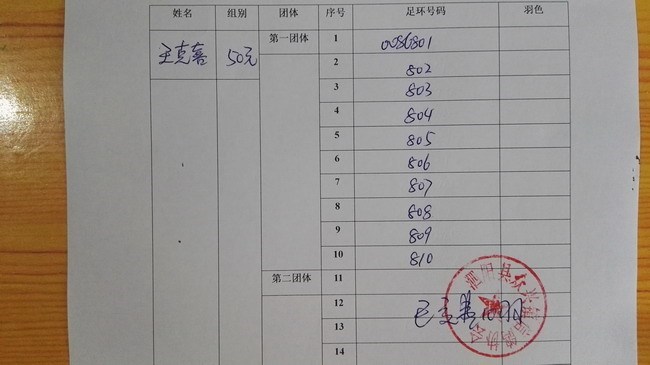 姓名 组别 团体 序号 足环号码 羽色
王克喜 50元 第一团体 1 0086801
2 802
3 803
4 804
5 805
6 806
7 807
8 808
9 809
10 810
第二团体 11
12
13
14
泗阳县众兴 信鸽协会